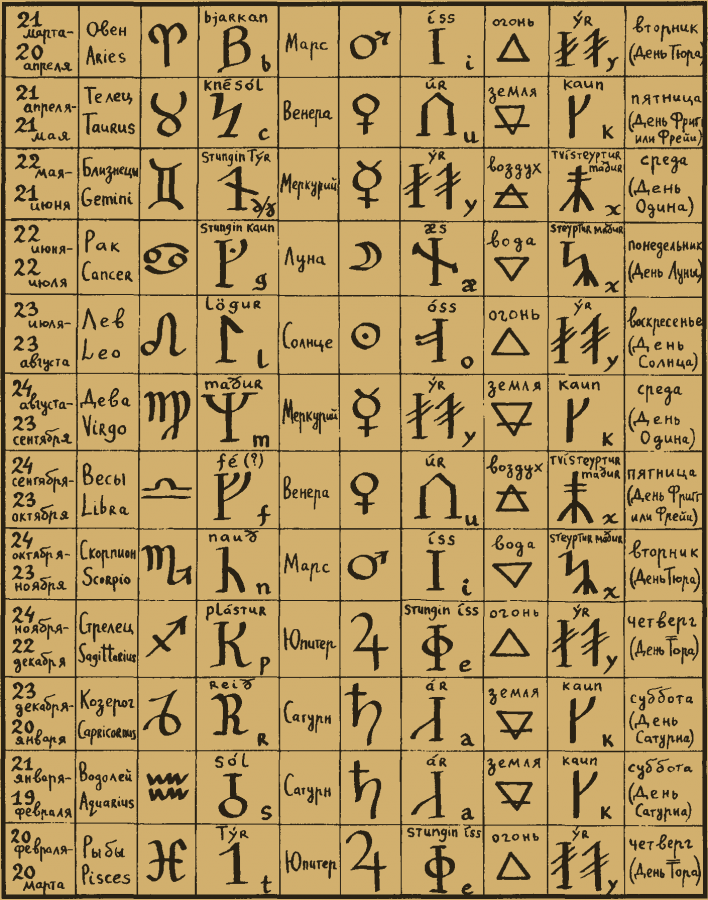 21
марта-
20
апреля
Овен
Aries
bjarkan
b
Марс
íss
i
огонь
ýR
y
вторник
(День Тюра)
21
апреля-
21
мая
Телец
Taurus
knésól
c
Венера
úR
u
земля
kaun
k
пятница
(День Фригг
или Фрейи)
22
мая-
21
июня
Близнецы
Gemini
Stungin Týr
ð/ȝ
Меркурий
ýR
y
воздух
Tvísteyptur
maður
x
среда
(День
Одина)
22
июня-
22
июля
Рак
Cancer
Stungin kaun
g
Луна
æs
æ
вода
Steyptur maður
x
понедельник
(День Луны)
23
июля-
23
августа
Лев
Leo
lögur
l
Солнце
óss
o
огонь
ýR
y
воскресенье
(День
Солнца)
24
августа-
23
сентября
Дева
Virgo
maður
m
Меркурий
ýR
y
земля
kaun
k
среда
(День
Одина)
24
сентября-
23
октября
Весы
Libra
fé (?)
f
Венера
úR
u
воздух
Tvísteyptur
maður
x
пятница
(День Фригг
или Фрейи)
24
октября-
23
ноября
Скорпион
Scorpio
nauð
n
Марс
íss
i
вода
Steyptur maður
x
вторник
(День Тюра)
24
ноября-
22
декабря
Стрелец
Sagittarius
plástur
p
Юпитер
Stungin íss
e
огонь
ýR
y
четверг
(День Тора)
23
декабря-
20
января
Козерог
Capricornus
reið
R
Сатурн
áR
a
земля
kaun
k
суббота
(День
Сатурна)
21
января-
19
февраля
Водолей
Aquarius
sól
s
Сатурн
áR
a
земля
kaun
k
суббота
(День
Сатурна)
20
февраля-
20
марта
Рыбы
Pisces
Týr
t
Юпитер
Stungin íss
e
огонь
ýR
y
четверг
(День Тора)